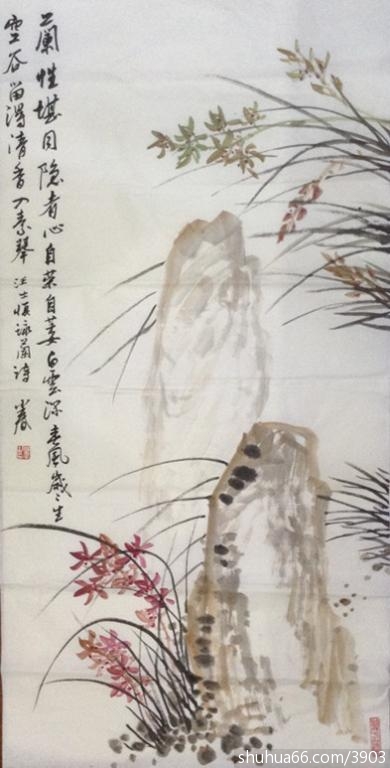 蘭性堪同隐者心自荣自萎白雲深春風歲々生
空谷留得清香入素琴 汪士慎詠蘭詩
shuhua66.com/3903